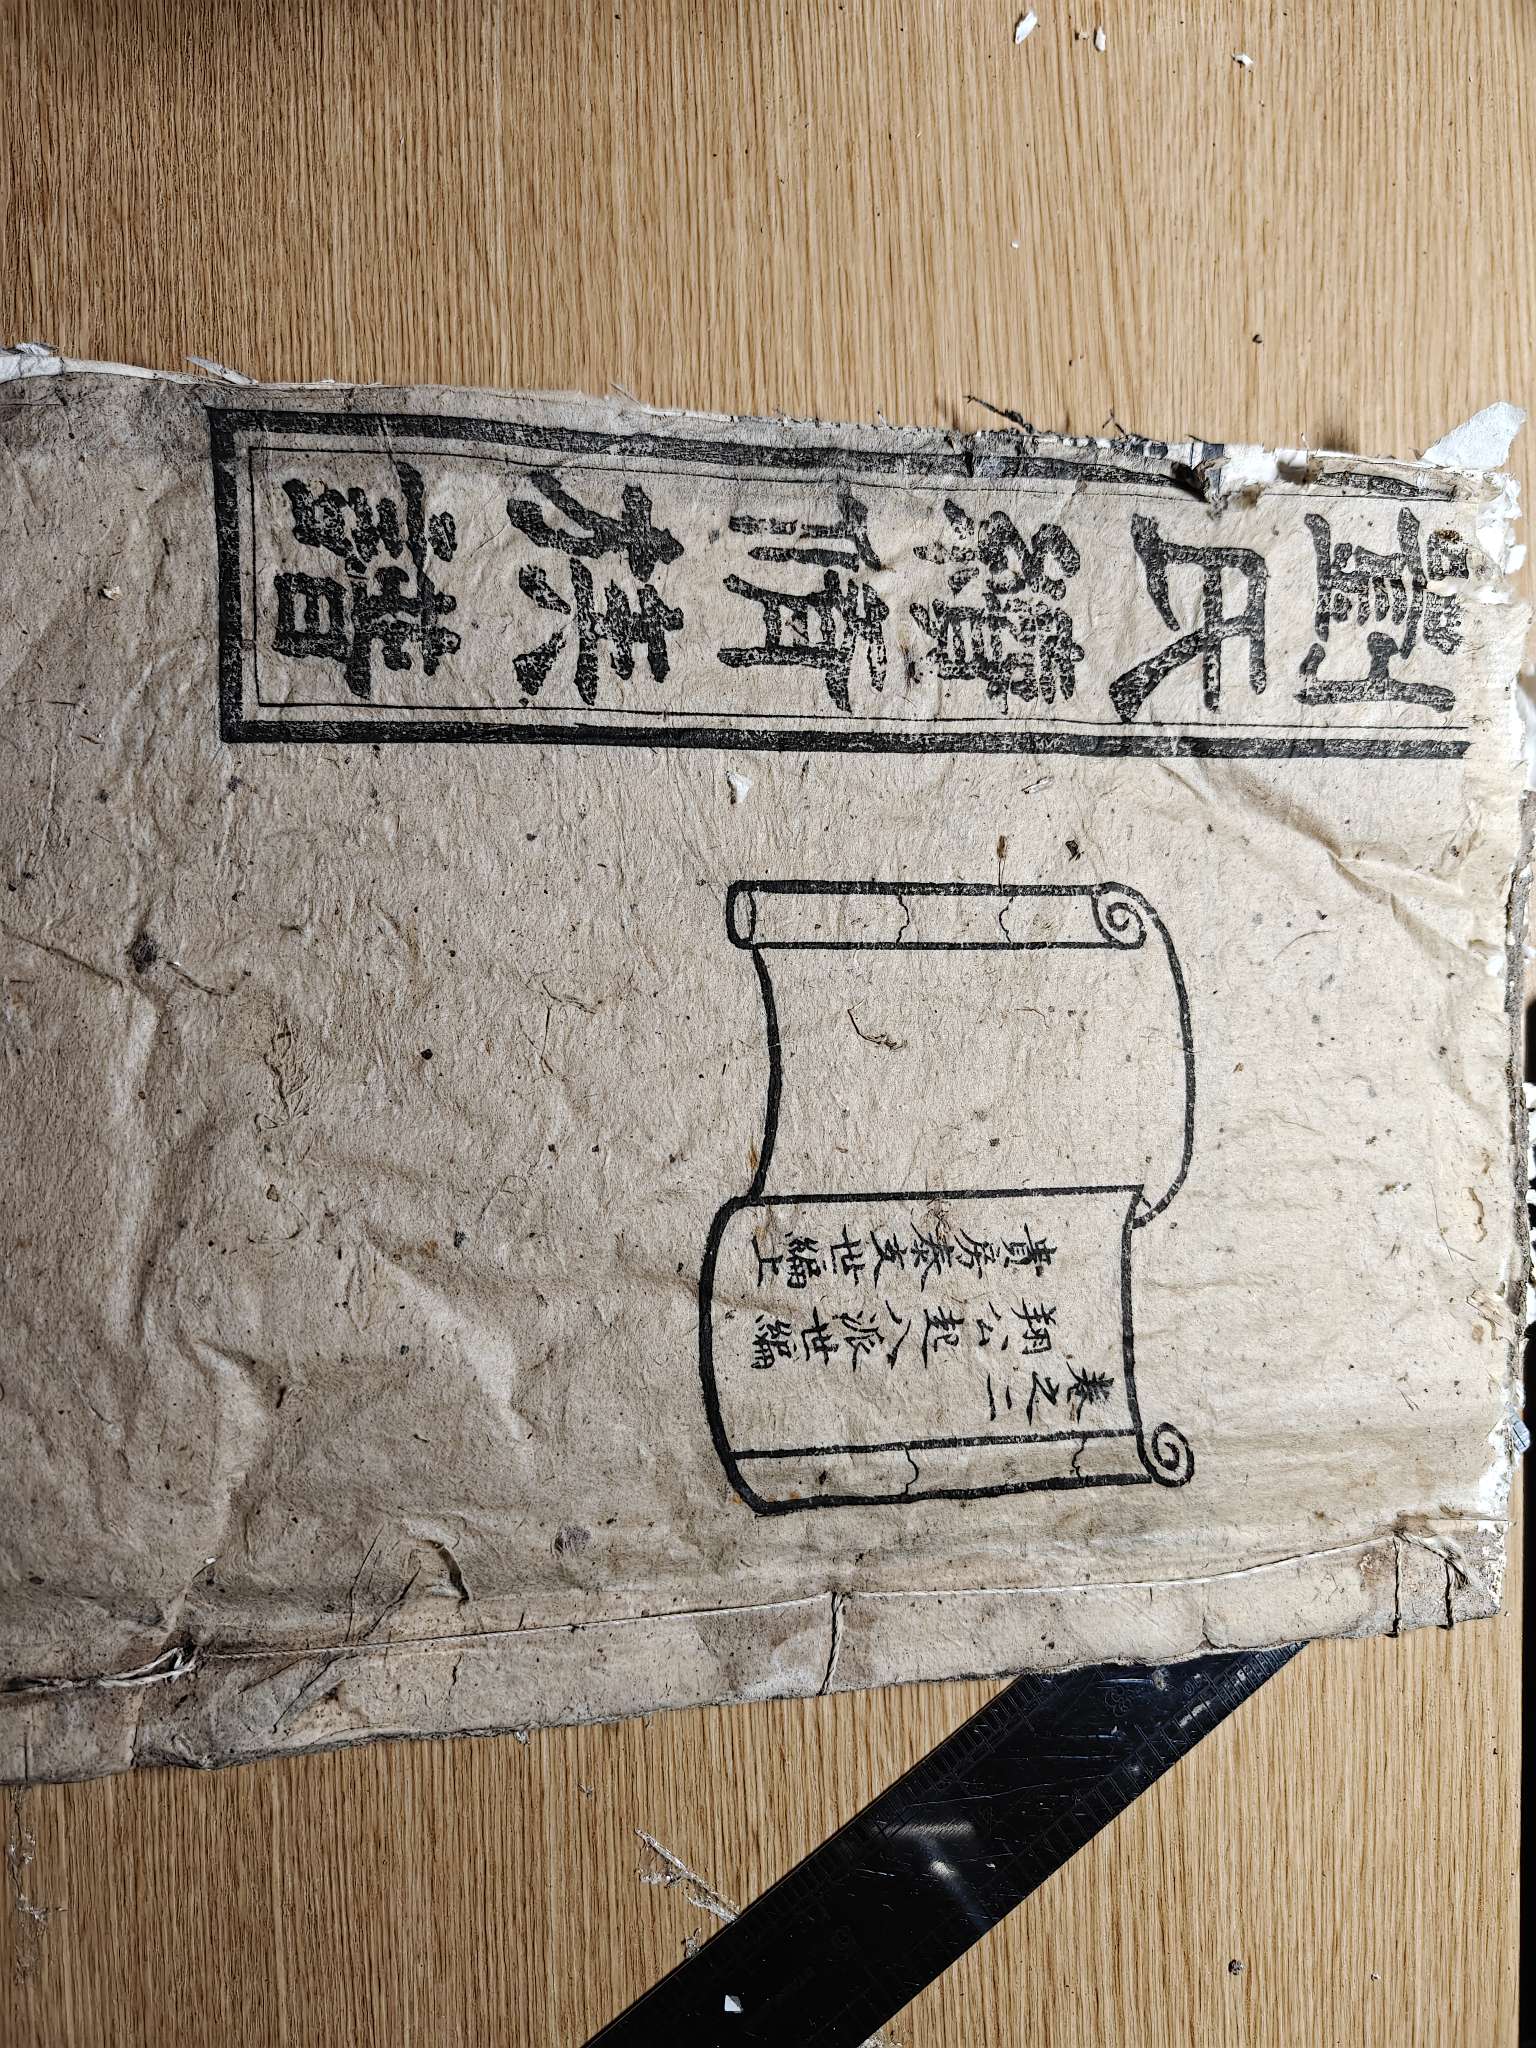 氏續脩族譜
卷之二
翔公起八派世編
貴房泰支世編上